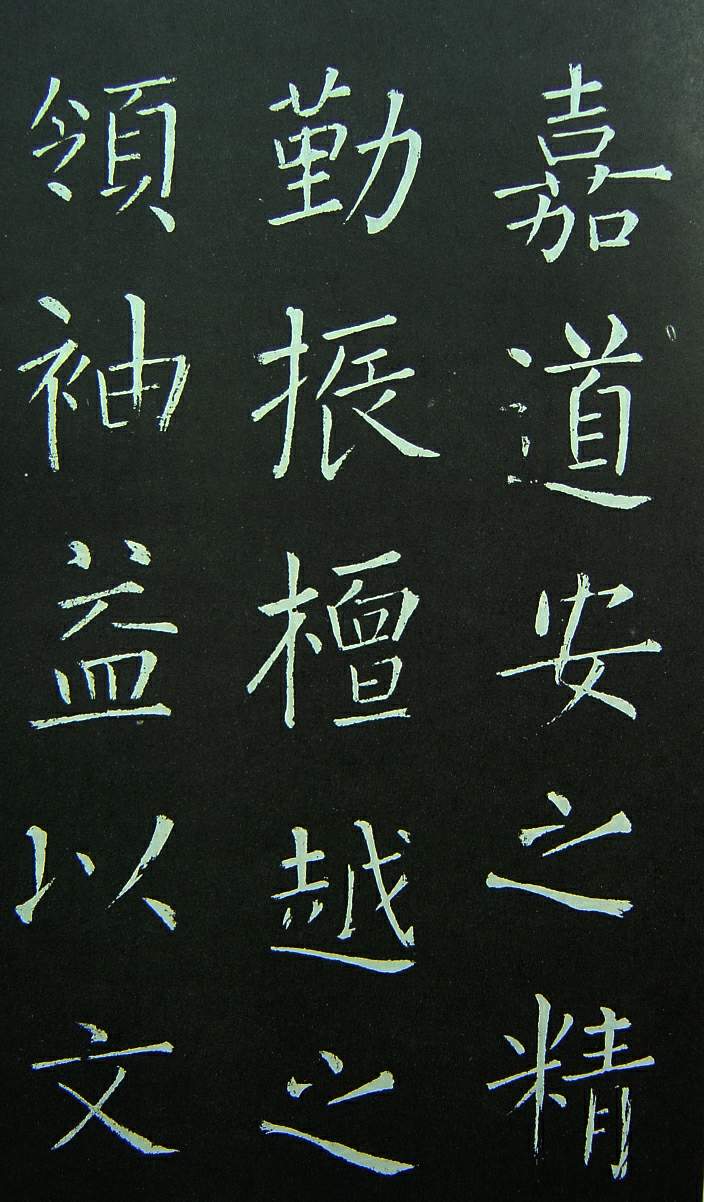 嘉道安之精
勤振檀越之
領袖益以文